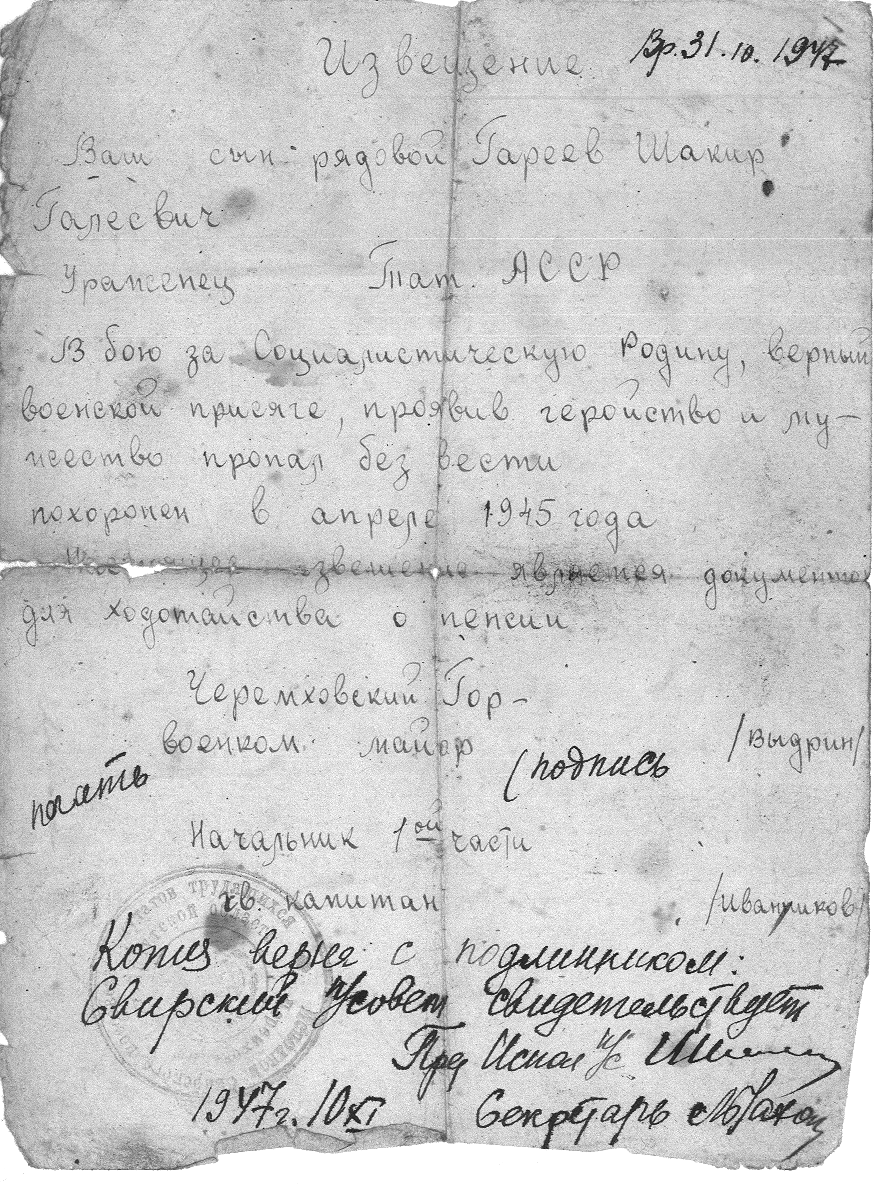 Извещение
Вр. 31.10.1947
Ваш сын рядовой Гареев Шакир
Галеевич
Уроженец Тат. АССР
В бою за Социалистическую Родину, верный
военской присяге, проявив геройство и му-
жество пропал без вести
похоронен в апреле 1945 года
извещение является документом
для ходотайства о пенсии
Черемховский Гор-
военком майор /Выдрин/
печать (подпись
Начальник 1ой части
капитан /Иванников/
Копия верна с подлинником:
Свирский п/совет свидетельствует
Пред Испол п/с
1947 г. 10 XI Секретарь